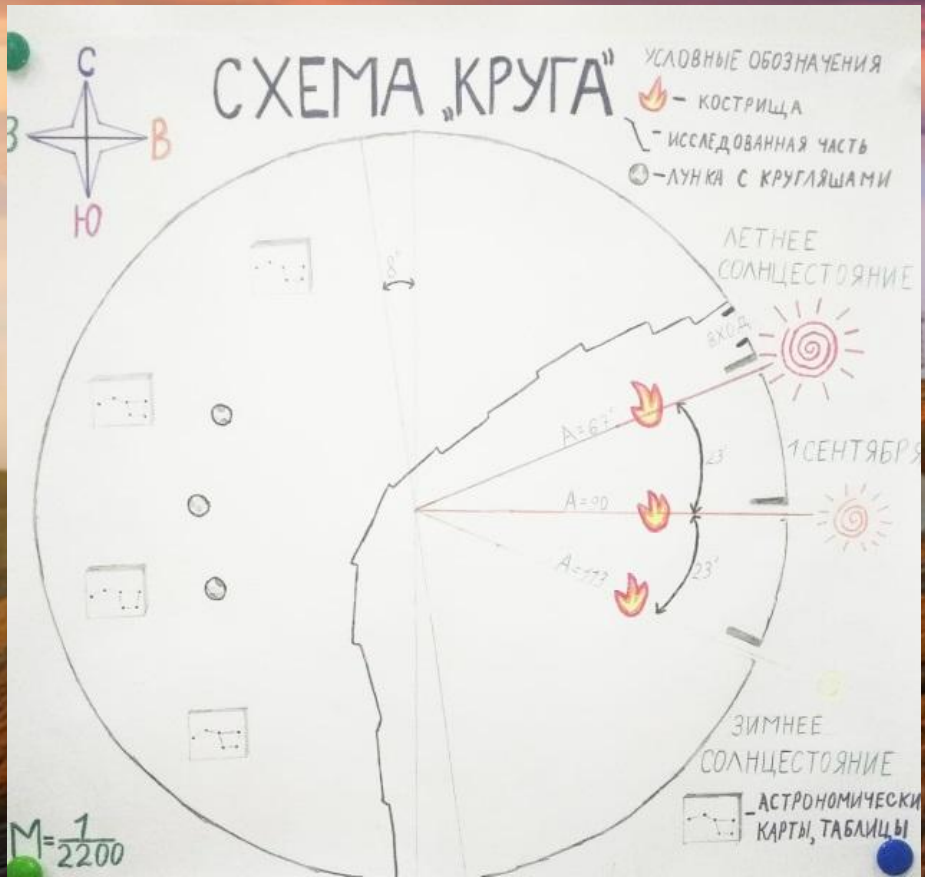 С
З
В
Ю
СХЕМА „КРУГА“
УСЛОВНЫЕ ОБОЗНАЧЕНИЯ
- КОСТРИЩА
- ИССЛЕДОВАННАЯ ЧАСТЬ
- ЛУНКА С КРУГЛЯШАМИ
8°
ЛЕТНЕЕ
СОЛНЦЕСТОЯНИЕ
ВХОД
A=67°
23°
1 СЕНТЯБРЯ
A=90
A=113
23°
ЗИМНЕЕ
СОЛНЦЕСТОЯНИЕ
- АСТРОНОМИЧЕСКИ
КАРТЫ, ТАБЛИЦЫ
М=1/2200